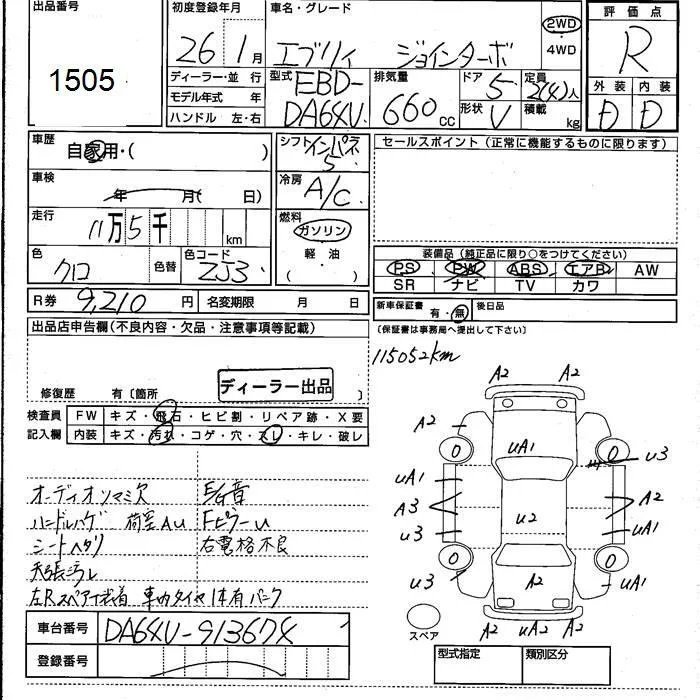 出品番号
1505
初度登録年月
26 1月
車名・グレード
エブリィ ジョインターボ
2WD
・
4WD
評価点
R
外装 内装
D D
ディーラー・並 行
モデル年式 年
ハンドル 左・右
型式
EBD-
DA64V
排気量
660cc
ドア
5
形状
V
定員
2(4)人
積載
kg
車歴
自家用・( )
車検
年 月( 日)
走行
11万5千 km
色
クロ
色替
色コード
ZJ3
シフト
インパネ
5
冷房
A/C
燃料
ガソリン
・軽油
( )
セールスポイント(正常に機能するものに限ります)
装備品(純正品に限り○をつけてください)
PS PW ABS エアB AW
SR ナビ TV カワ
R券 9,210円
名変期限 月 日
新車保証書 有・無
後日品
(保証書は事務局へ提出して下さい)
出品店申告欄(不良内容・欠品・注意事項等記載)
修復歴 有〔箇所 〕
ディーラー出品
115052km
検査員
記入欄
FW キズ・飛石・ヒビ割・リペア跡・X要
内装 キズ・汚れ・コゲ・穴・スレ・キレ・破レ
オーディオソマミ欠
E/G音
ハンドルハゲ 荷室AU
FピラーU
シートヘタリ
右電格不良
天張汚レ
左Rスペア装着 車内タイヤ1本有パンク
A2 A2
A2
UA1
0 0
U3
UA1
A3
U3
U2
A2
UA1
0 0
U3
A2
UA1
スペア
A2 UA2 A2
車台番号 DA64V-913674
登録番号
型式指定 類別区分